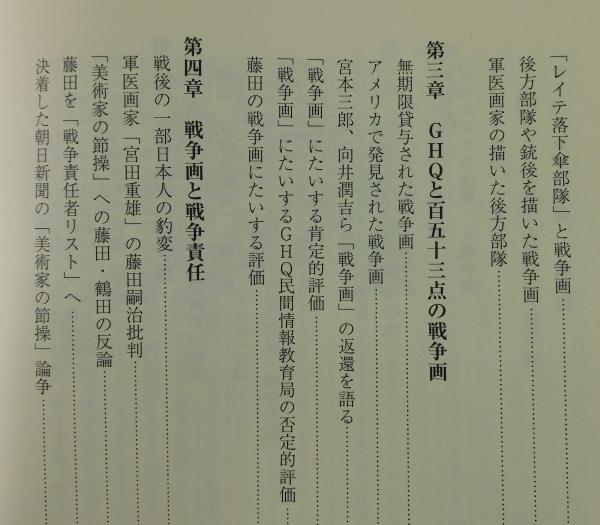 「レイテ落下傘部隊」と戦争画
後方部隊や銃後を描いた戦争画
軍医画家の描いた後方部隊
第三章　GHQと百五十三点の戦争画
無期限貸与された戦争画
アメリカで発見された戦争画
宮本三郎、向井潤吉ら「戦争画」の返還を語る
「戦争画」にたいする肯定的評価
「戦争画」にたいするGHQ民間情報教育局の否定的評価
藤田の戦争画にたいする評価
第四章　戦争画と戦争責任
戦後の一部日本人の豹変
軍医画家「宮田重雄」の藤田嗣治批判
「美術家の節操」への藤田・鶴田の反論
藤田を「戦争責任者リスト」へ
決着した朝日新聞の「美術家の節操」論争